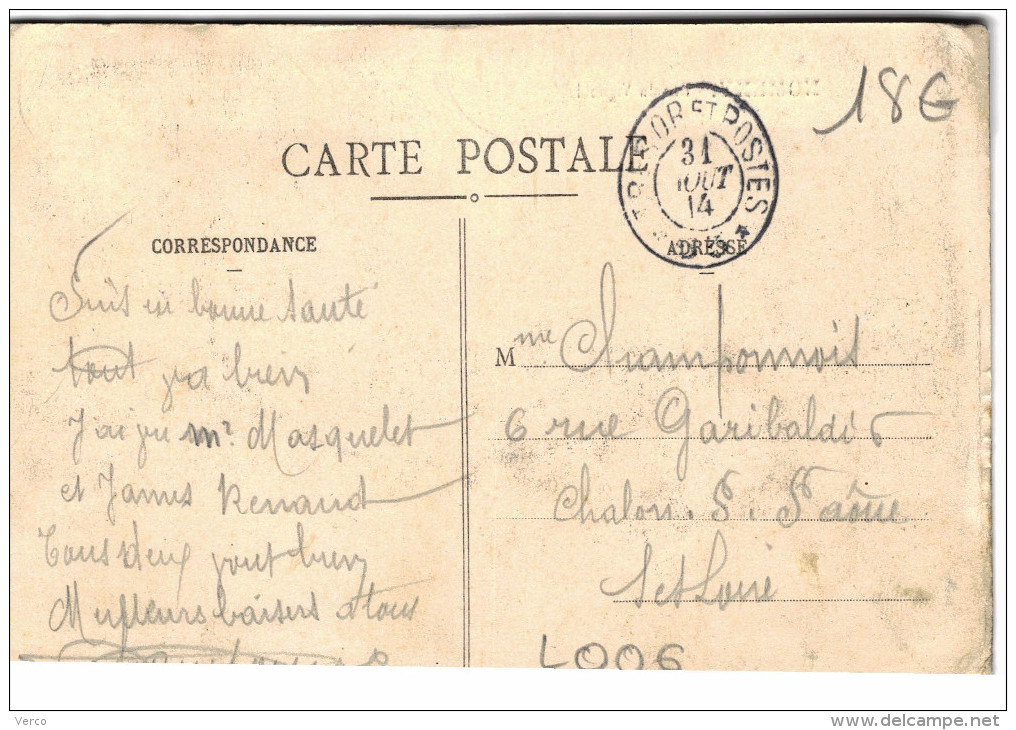 18€
CARTE POSTALE
TRESOR ET POSTES
31
AOUT
14
CORRESPONDANCE
ADRESSE
Suis en bonne santé
tout va bien
J'ai vu Mr Masquelet
et James Renaud
Tous deux vont bien
Meilleurs baisers à tous
Mme Champonnois
6 rue Garibaldi 6
Chalon. S. Saône
S et Loire
L006
Verco
delcampe.net